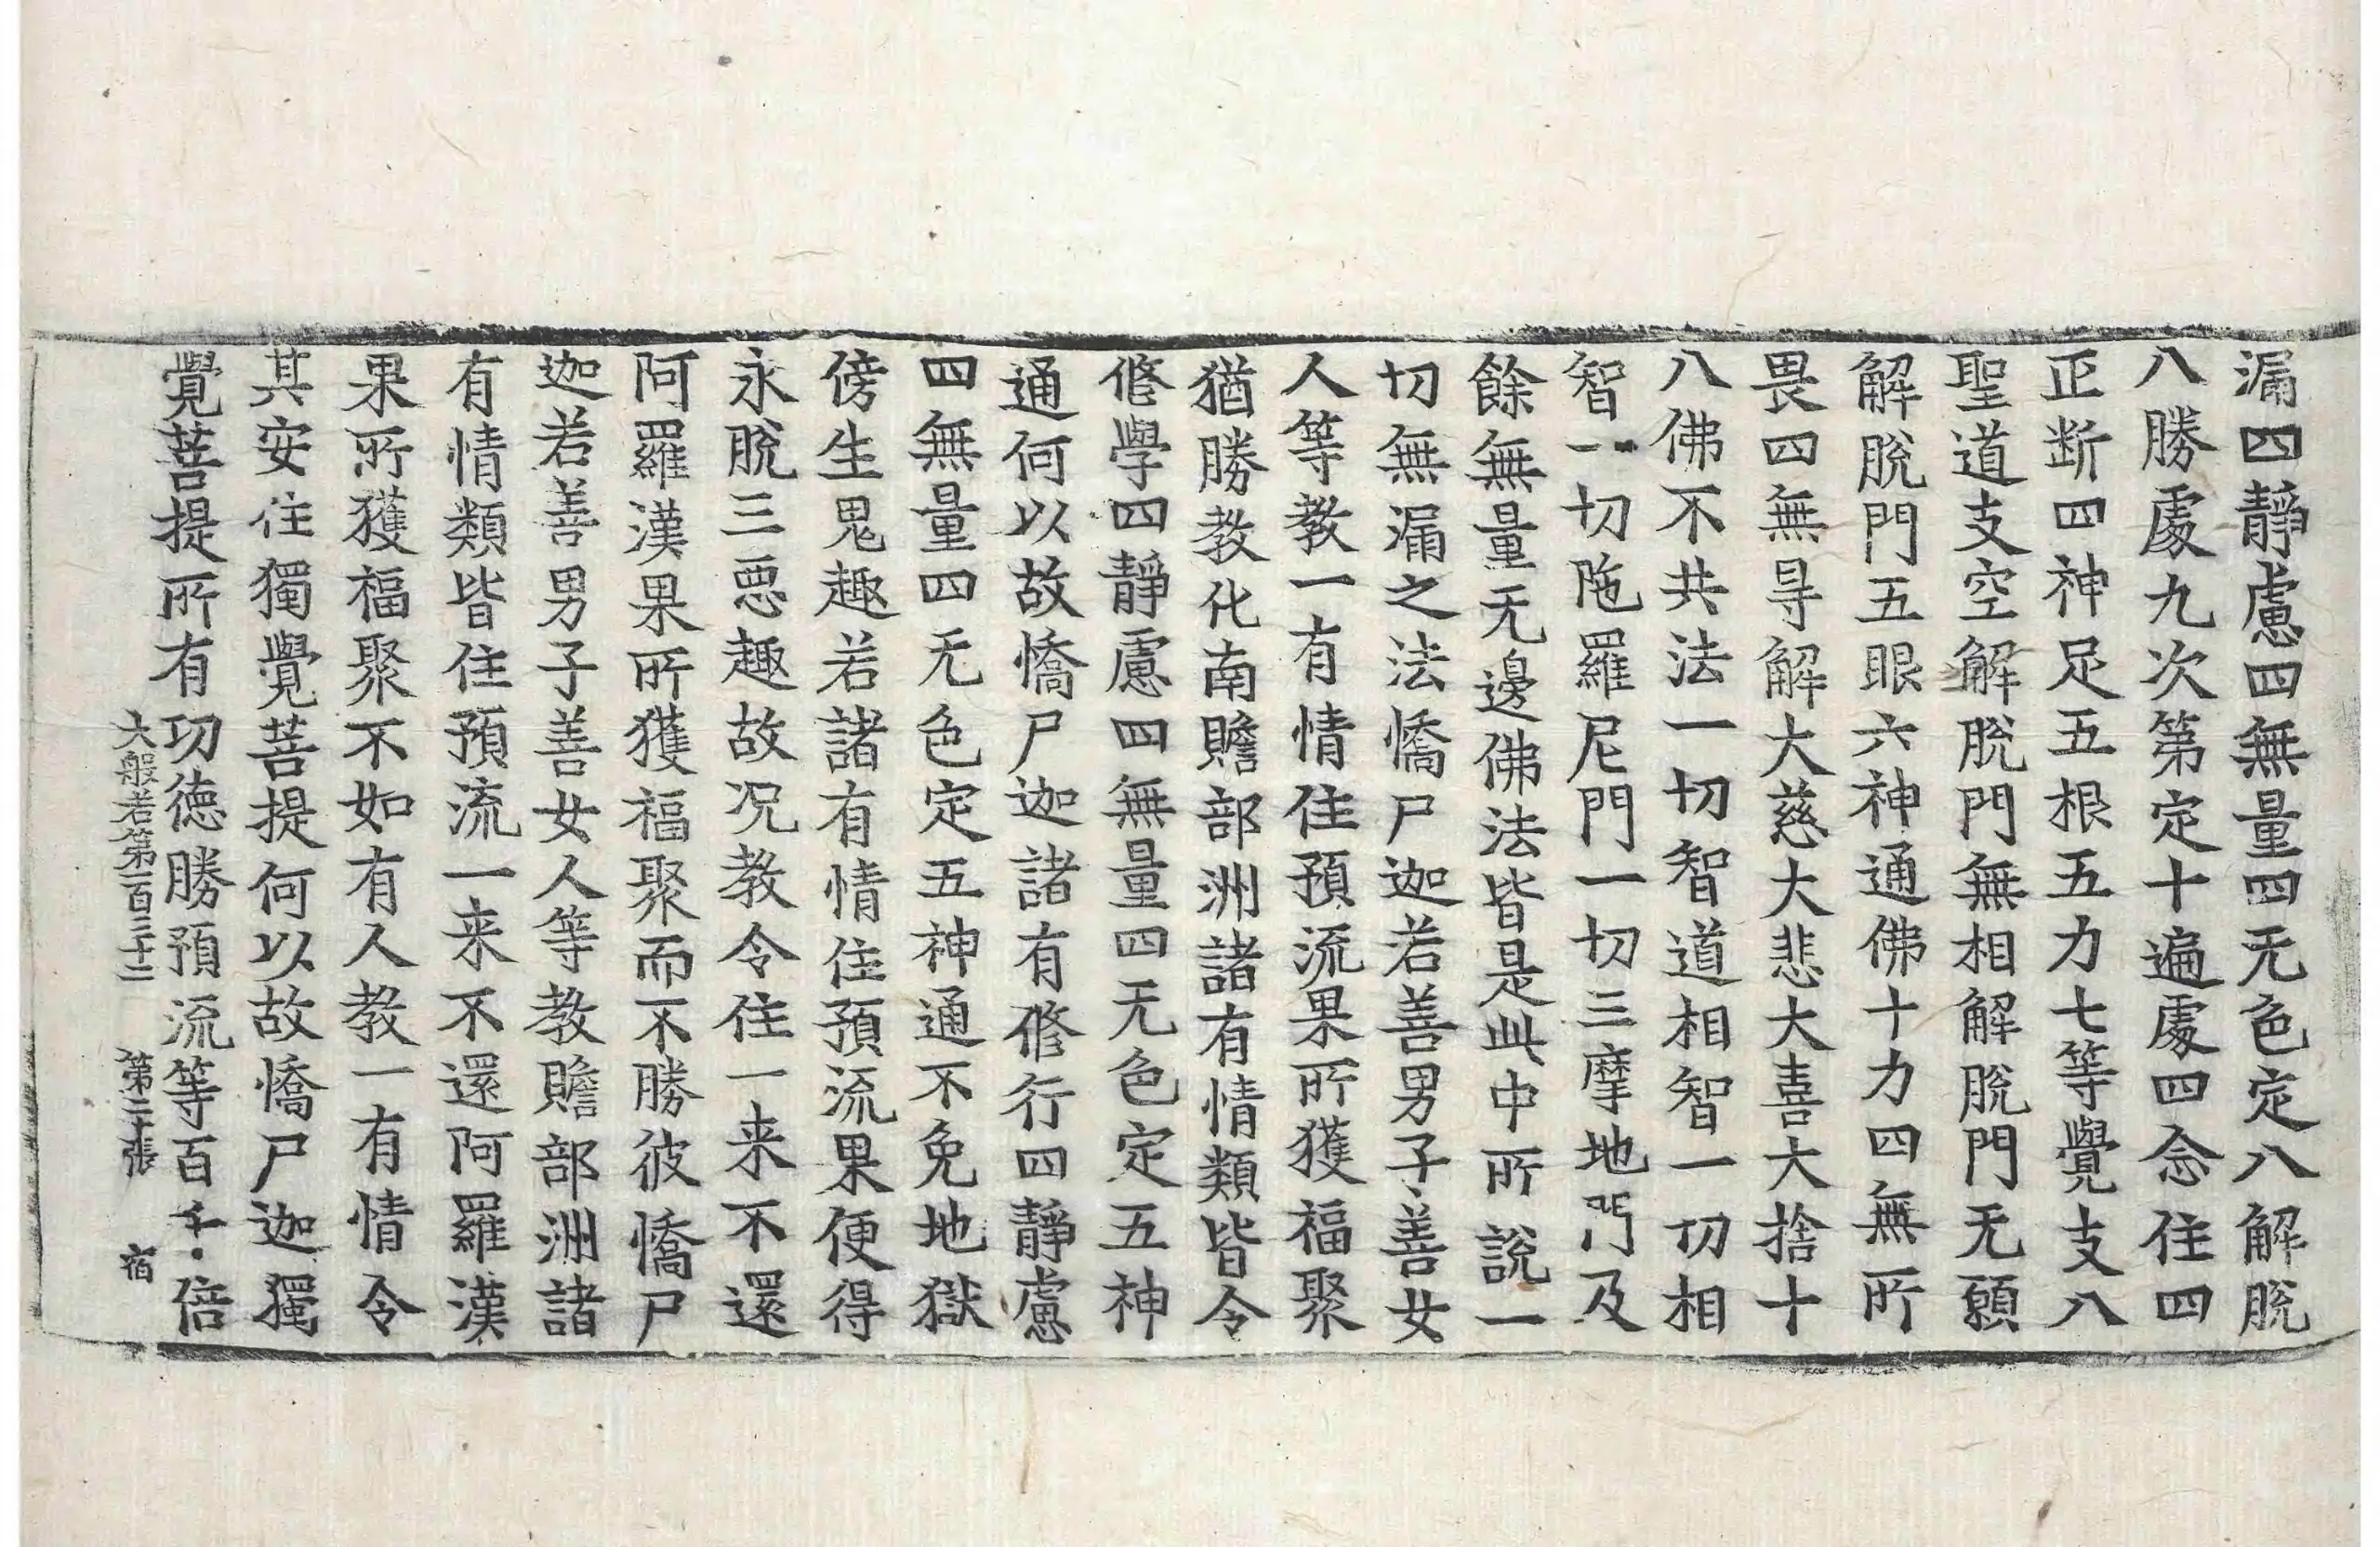 漏四靜慮四無量四无色定八解脫
八勝處九次第定十遍處四念住四
正断四神足五根五力七等覺支八
聖道支空解脫門無相解脫門无願
解脫門五眼六神通佛十力四無所
畏四無㝵解大慈大悲大喜大捨十
八佛不共法一切智道相智一切相
智一切陁羅尼門一切三摩地門及
餘無量无邊佛法皆是此中所說一
切無漏之法憍尸迦若善男子善女
人等教一有情住預流果所獲福聚
猶勝教化南贍部洲諸有情類皆令
修學四靜慮四無量四无色定五神
通何以故憍尸迦諸有修行四靜慮
四無量四无色定五神通不免地獄
傍生鬼趣若諸有情住預流果便得
永脫三惡趣故况教令住一来不還
阿羅漢果所獲福聚而不勝彼憍尸
迦若善男子善女人等教贍部洲諸
有情類皆住預流一来不還阿羅漢
果所獲福聚不如有人教一有情令
其安住獨覺菩提何以故憍尸迦獨
覺菩提所有功德勝預流等百千倍
大般若第一百三十二 第二十張 宿